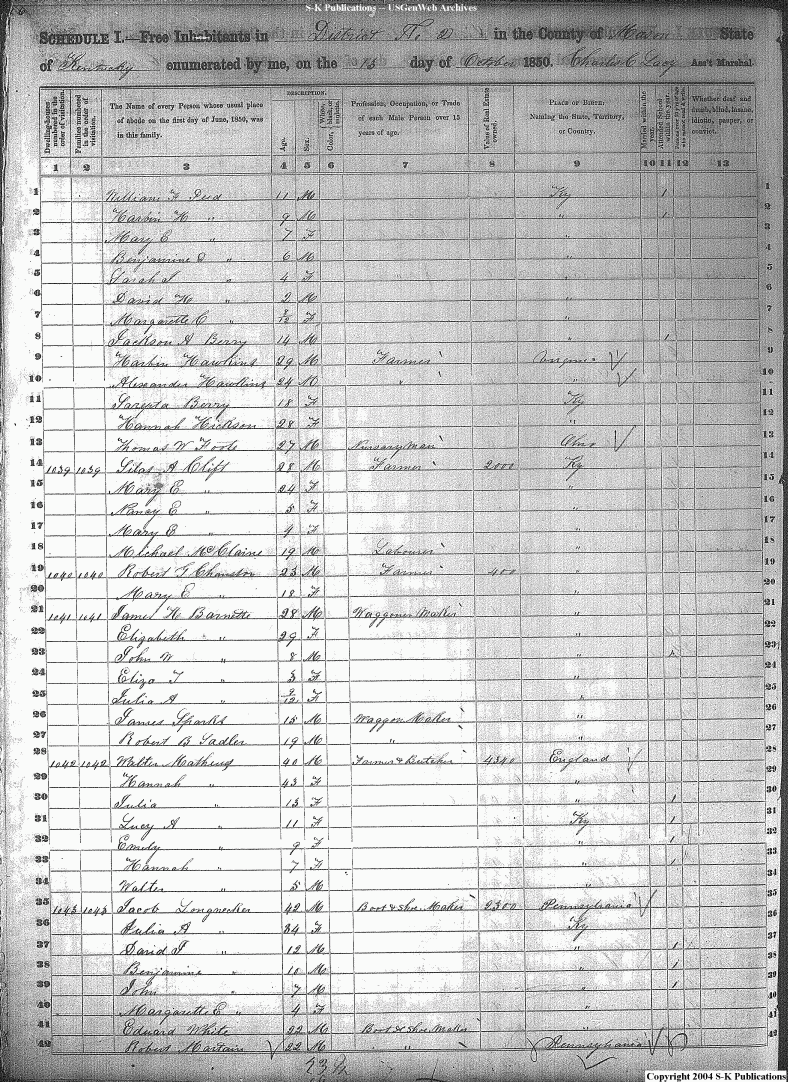 S-K Publications – USGenWeb Archives
SCHEDULE I.—Free Inhabitants in District No 2 in the County of Mason State
of Kentucky enumerated by me, on the 15 day of October 1850. Charles C Ass't Marshal.
Dwelling-houses numbered in the order of visitation.
Families numbered in the order of visitation.
The Name of every Person whose usual place of abode on the first day of June, 1850, was in this family.
DESCRIPTION.
Age.
Sex.
Color, White, black, or mulatto.
Profession, Occupation, or Trade of each Male Person over 15 years of age.
Value of Real Estate owned.
PLACE OF BIRTH. Naming the State, Territory, or Country.
Married within the year.
Attended School within the year.
Whether deaf and dumb, blind, insane, idiotic, pauper, or convict.
1 2 3 4 5 6 7 8 9 10 11 12 13
1 William F 11 M Ky 1 1
2 Harbin H " 9 M " 1 2
3 Mary E " 7 F " 3
4 Benjamine " 6 M " 4
5 Sarah " 4 F " 5
6 David H " 2 M " 6
7 Margarette C " F " 7
8 Jackson A Berry 14 M " 1 8
9 Harbin Hawkins 29 M Farmer 9
10 Alexander Hawkins 24 M " " 10
11 Berry 18 F Ky 11
12 Hannah Hickson 28 F " 12
13 Thomas W Foote 27 M Nursary Man Ohio 13
14 1039 1039 Silas A Clift 28 M Farmer 2000 Ky 14
15 Mary E " 24 F " 15
16 Nancy E " 5 F " 16
17 Mary E " F " 17
18 Michael McClaine 19 M Labourer " 18
19 1040 1040 Robert G 23 M Farmer 400 " 19
20 Mary E " 18 F " 20
21 1041 1041 James H Barnette 28 M Waggoner Maker " 21
22 Elizabeth " 29 F " 22
23 John W " 8 M " 23
24 Eliza T " 3 F " 24
25 Julia A " 9/12 F " 25
26 James Sparks 15 M Waggon Maker " 26
27 Robert B Sadler 19 M " " 27
28 1042 1042 Walter Mathews 40 M Farmer & Butcher 4340 England 28
29 Hannah " 43 F " 29
30 Julia " 13 F " 1 30
31 Lucy A " 11 F Ky 1 31
32 Emely " 9 F " 1 32
33 Hannah " 7 F " 1 33
34 Walter " 5 M " 34
35 1043 1043 Jacob Longnecker 42 M Boot & Shoe Maker 2300 Pennsylvania 35
36 Julia A " 34 F Ky 36
37 David " 12 M " 1 37
38 Benjamine " 10 M " 1 38
39 John " 7 M " 1 39
40 Margarette E " 4 F " 40
41 Edward White 22 M Boot & Shoe Maker " 41
42 Robert Martain 22 M " " Pennsylvania 42
Copyright 2004 S-K Publications